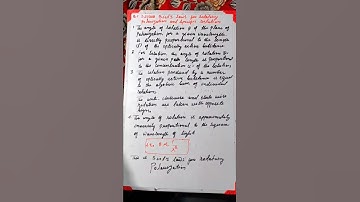 Biot's laws for Rotatory
Polarization and Specific Rotation
1 The angle of rotation θ of the plane of
Polarization for a given wavelength
is directly proportional to the length
(l) of the optically active substance
2. For solution the angle of rotation θ
for a given path length is proportional
to the concentration of the solution
3. The rotation produced by a number
of optically active substances is equal
to the algebraic sum of individual
rotations.
The anti clockwise and clock wise
rotation are taken with opposite
signs.
4. The angle of rotation is approximately
inversely proportional to the square
of wavelength of light
i.e. θ ∝ 1/λ²
This is Biot's laws for Rotatory
Polarization